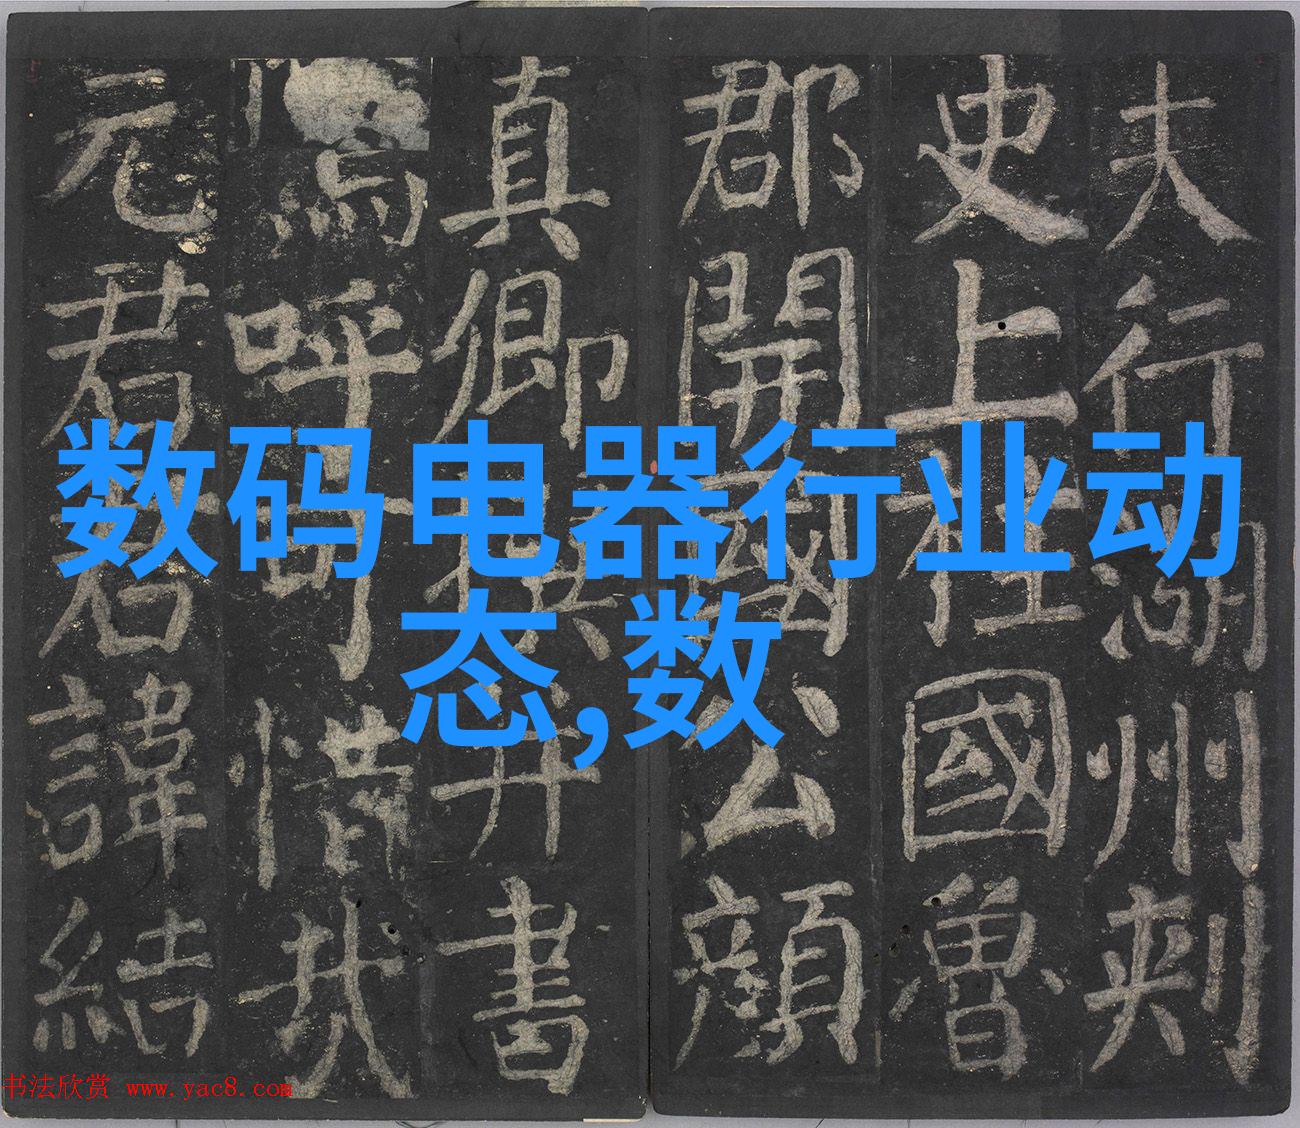 数码电器行业动
态,数
夫行湖州刺
史上柱國魯
郡開國公顔
真卿撰并書
嗚呼可惜哉
元君君諱結
书法欣赏 www.yac8.com